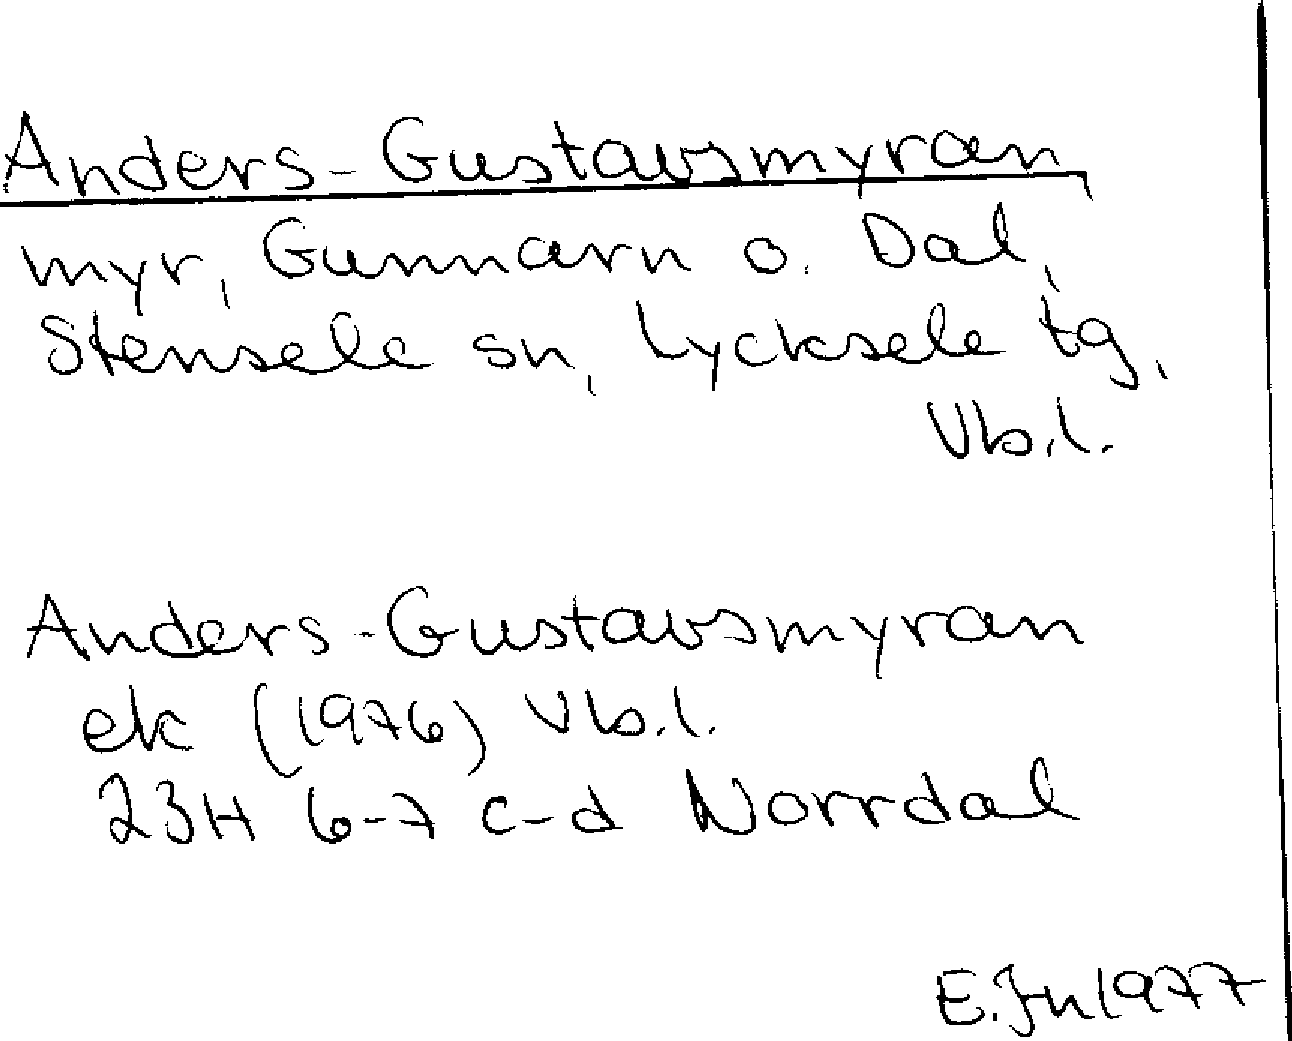 Anders-Gustavsmyran
myr, Gunnarn o. Dal,
Stensele sn, Lycksele tg,
Vb.l.
Anders-Gustavsmyran
ek (1976) Vb.l.
23H 6-7 c-d Norrdal
E.Jn 1977